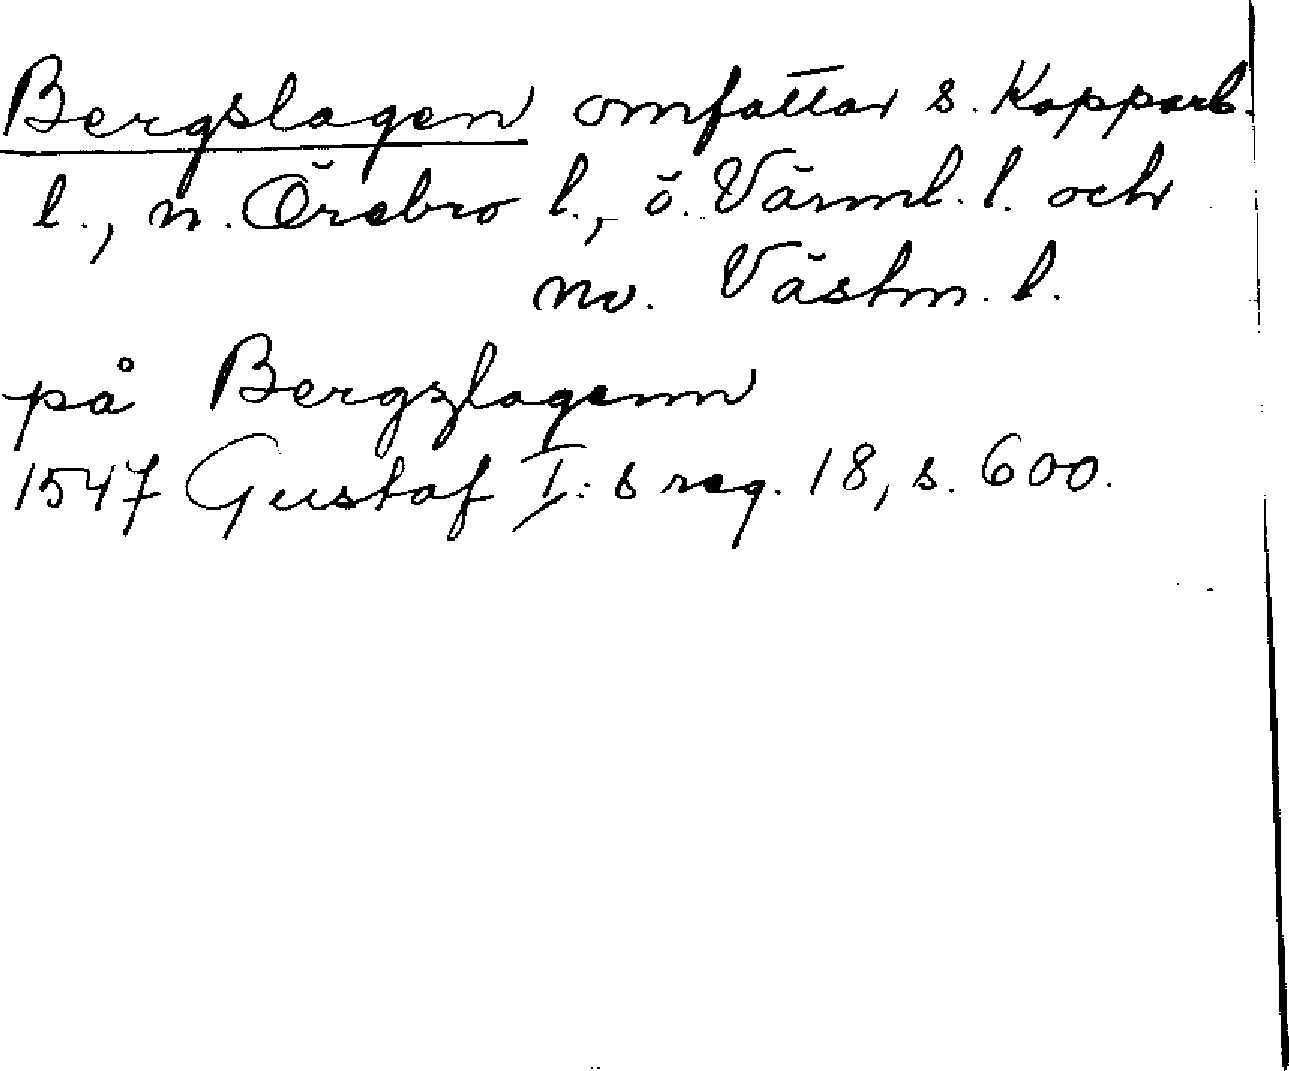 Bergslagen omfattar s. Kopparb.
l., n. Örebro l., ö. Värml. l. och
nv. Västm. l.
på Bergzlagenn
1547 Gustaf I:s reg. 18, s. 600.